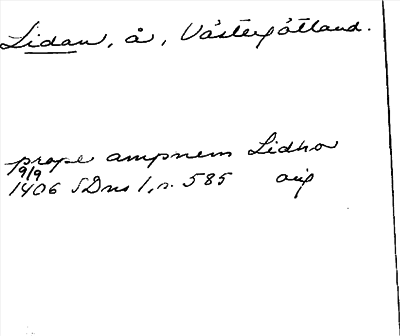 Lidan, å, Västergötland.
prope ampnem Lidho
9/9
1406 SDns 1, s. 585 orig